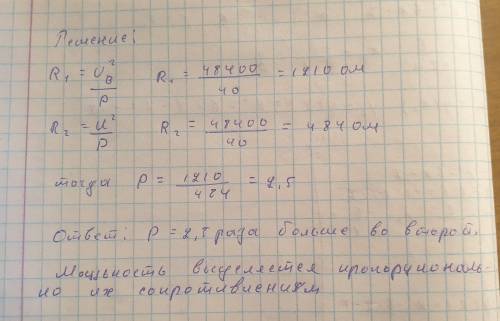 Решение:
R₁ = U_B²/P R₁ = 48400/40 = 1210 ом
R₂ = U²/P R₂ = 48400/40 = 484 ом
тогда P = 1210/484 = 2,5
Ответ: P = 2,5 раза больше во второй.
Мощьность выделяется пропорциональ-
но их сопротивлениям